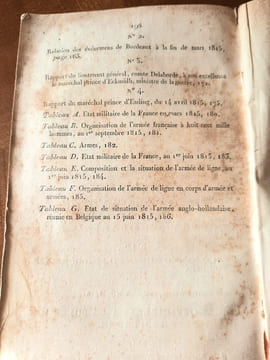 196
N° 2.
Relation des événemens de Bordeaux à la fin de mars 1815,
page 163.
N° 3.
Rapport du lieutenant général, comte Delaborde, à son excellence
le maréchal prince d'Eckmühl, ministre de la guerre, 172.
N° 4.
Rapport du maréchal prince d'Essling, du 14 avril 1815, 175.
Tableau A. Etat militaire de la France en mars 1815, 180.
Tableau B. Organisation de l'armée française à huit cent mille
hommes, au 1er septembre 1815, 181.
Tableau C. Armes, 182.
Tableau D. Etat militaire de la France, au 1er juin 1815, 183.
Tableau E. Composition et la situation de l'armée de ligne, au
1er juin 1815, 184.
Tableau F. Organisation de l'armée de ligne en corps d'armée et
armées, 185.
Tableau G. Etat de situation de l'armée anglo-hollandaise,
réunie en Belgique au 15 juin 1815, 186.